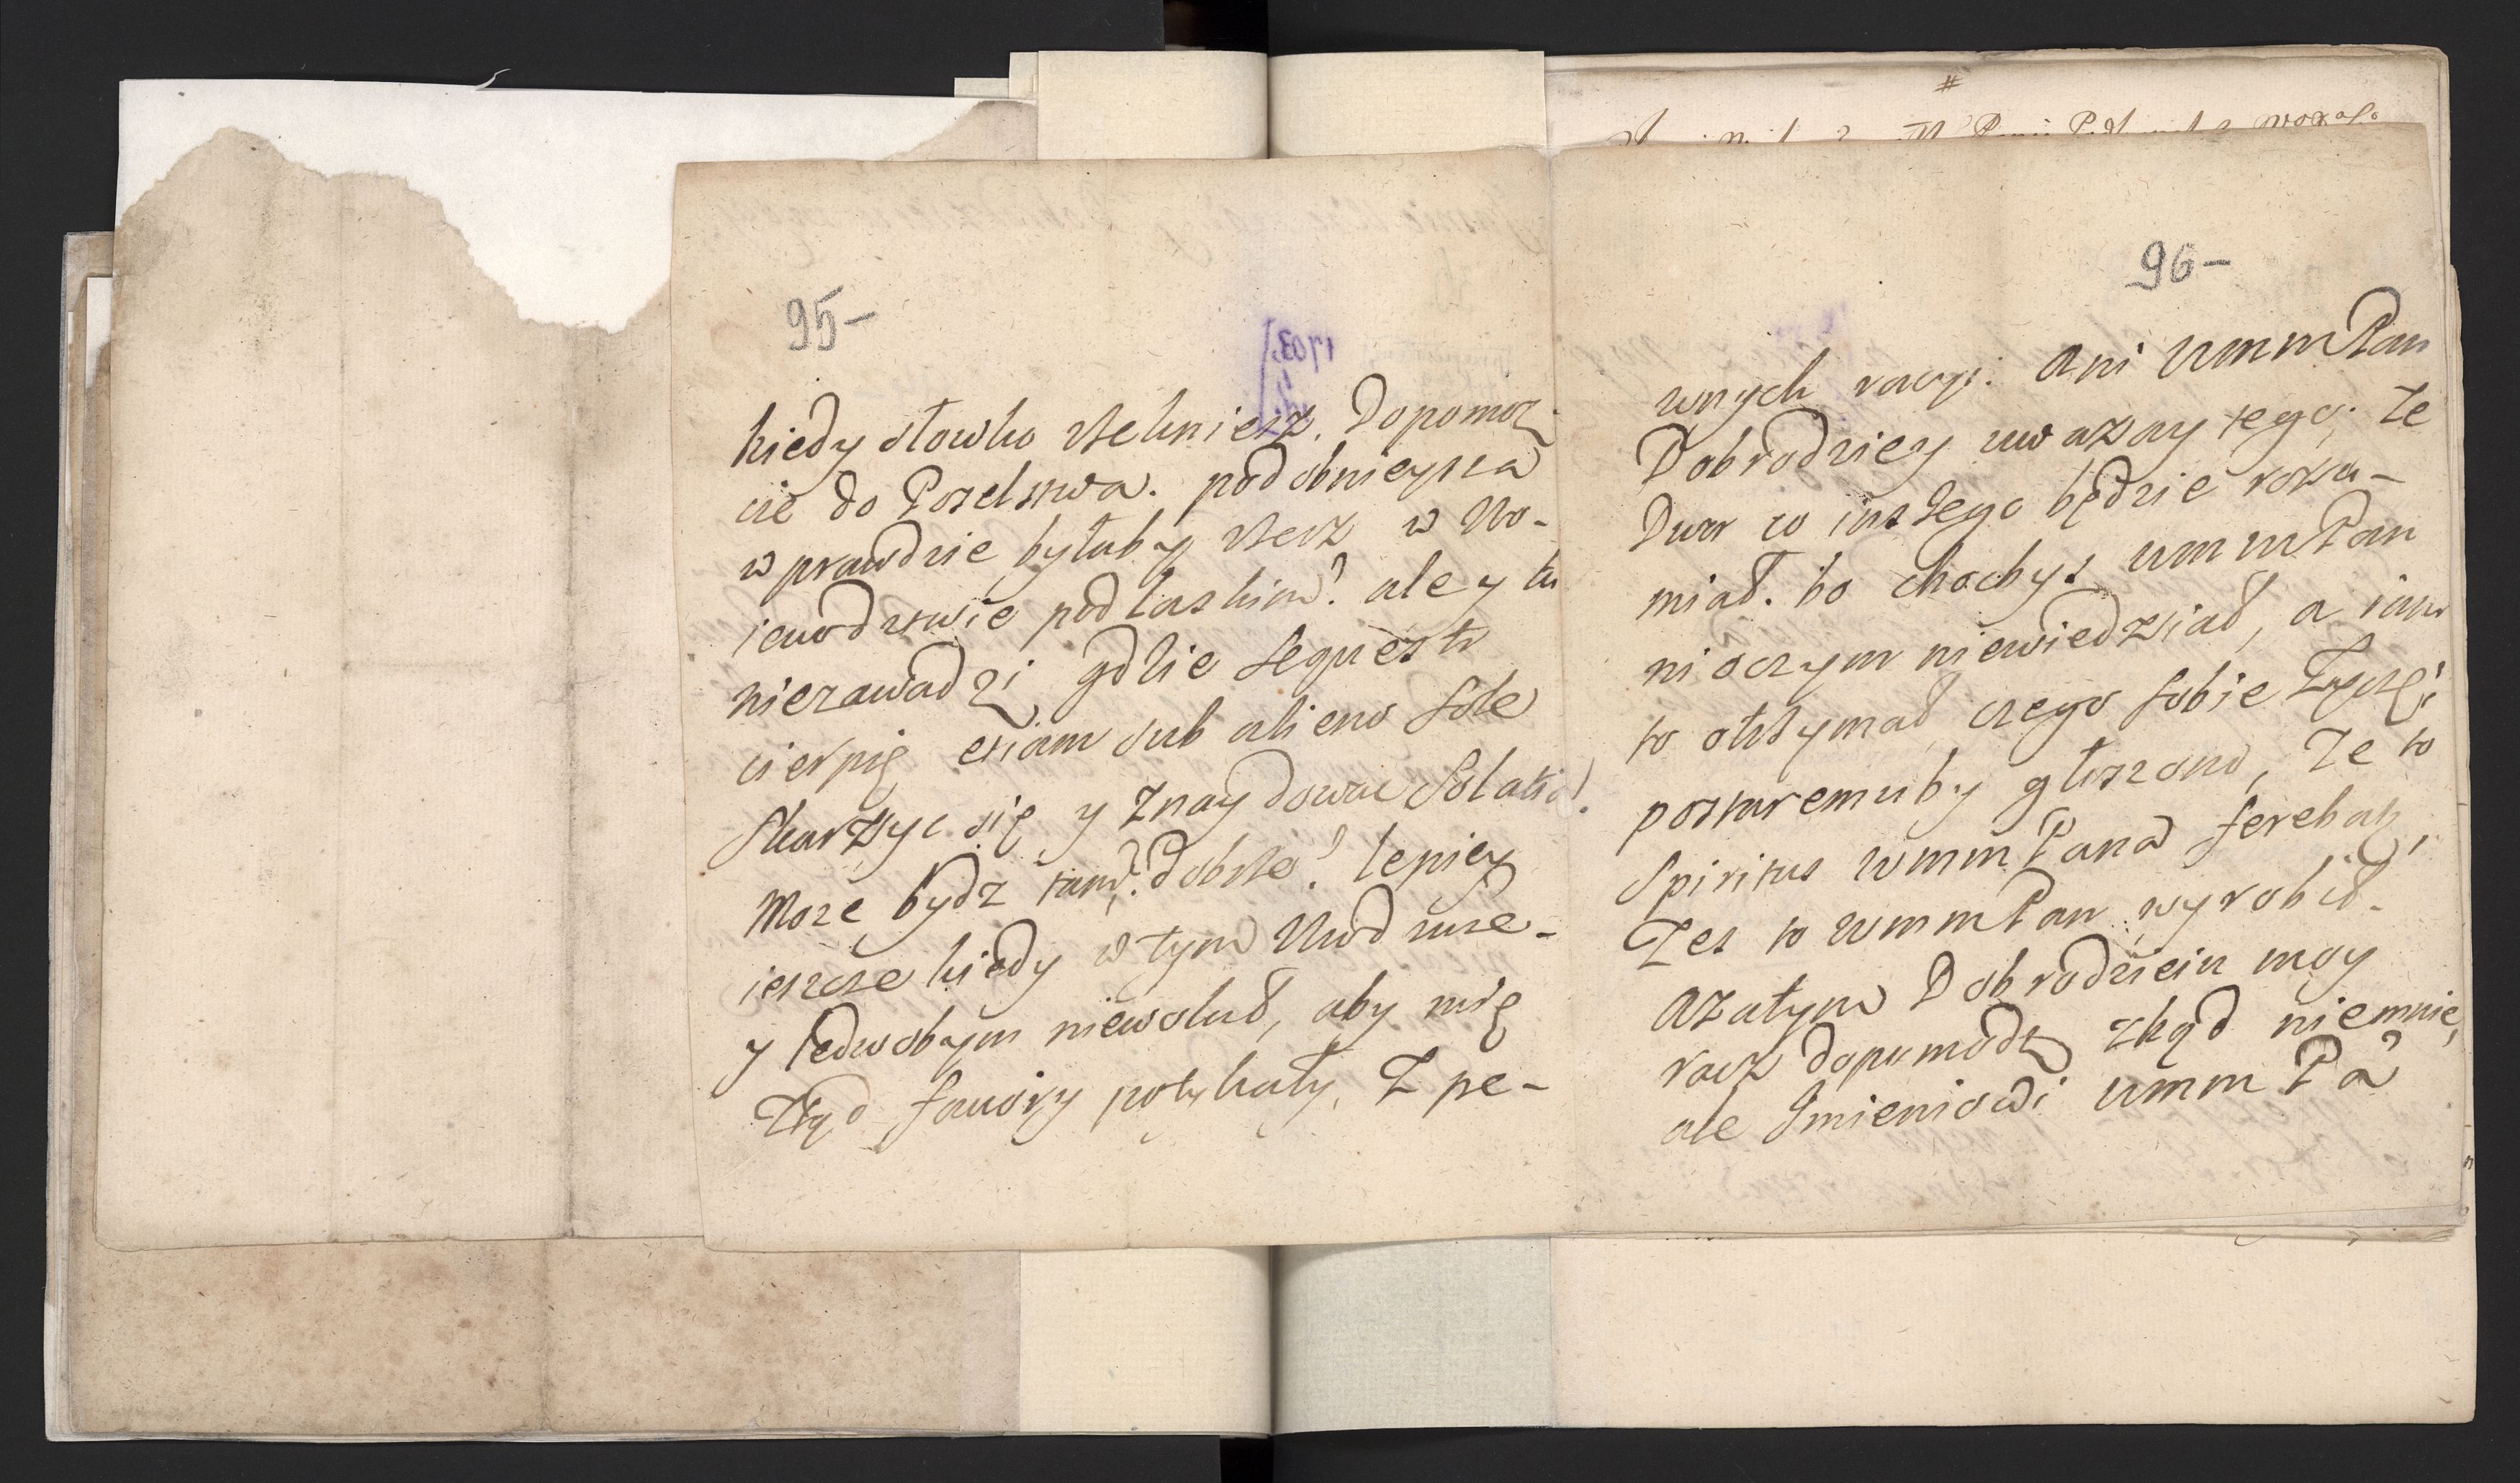 95-
kiedy słowko rzekniesz. Dopomoz
cie do Poselstwa. podobnieysza
w prawdzie byłaby rzecz w Wo-
iewodztwie podlaskim? ale y tu
niezawadzi gdzie sequestr
cierpię etiam sub alieno sole
skarzyc się y znaydowac solatia.
Moze bydz tam dobrze! lepiey
ieszcze kiedy w tym
y ledwobym niewolał, aby mię
ztąd fawory potykały. Z pe-
96-
wnych racyi. Ani WmmPan
Dobrodziey uwazay tego; ze
Dwor co inszego będzie rozu-
miał. bo chocbys WmmPan
nioczym niewiedział, a iam
to otrzymał czego sobie zyczę;
postaremuby głoszono, ze to
Spiritus WmmPana ferebat,
Zes to WmmPan wyrobił.
Azatym Dobrodzieiu moy
racz dopomodz zkąd niemnie,
ale Imieniowi Wmm Pa